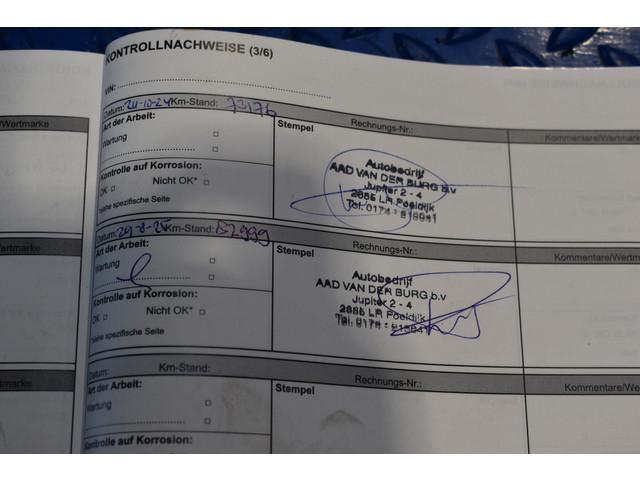 KONTROLLNACHWEISE (3/6)
VIN:
Datum: 24-10-24 Km-Stand: 73176
Art der Arbeit:
Wartung
Kontrolle auf Korrosion:
OK Nicht OK*
*siehe spezifische Seite
Stempel
Rechnungs-Nr.:
Kommentare/Wertmarke
Autobedrijf
AAD VAN DER BURG b.v
Jupiter 2 - 4
2685 LR Poeldijk
Tel. 0174
Datum: 29-8-25 Km-Stand: 82999
Art der Arbeit:
Wartung
Kontrolle auf Korrosion:
OK Nicht OK*
*siehe spezifische Seite
Stempel
Rechnungs-Nr.:
Kommentare/Wertm
Autobedrijf
AAD VAN DER BURG b.v
Jupiter 2 - 4
2685 LR Poeldijk
Tel. 0174
Datum: Km-Stand:
Art der Arbeit:
Wartung
Kontrolle auf Korrosion:
Stempel
Rechnungs-Nr.:
Kommentare/Wer
/Wertmarke
ertmarke
tmarke